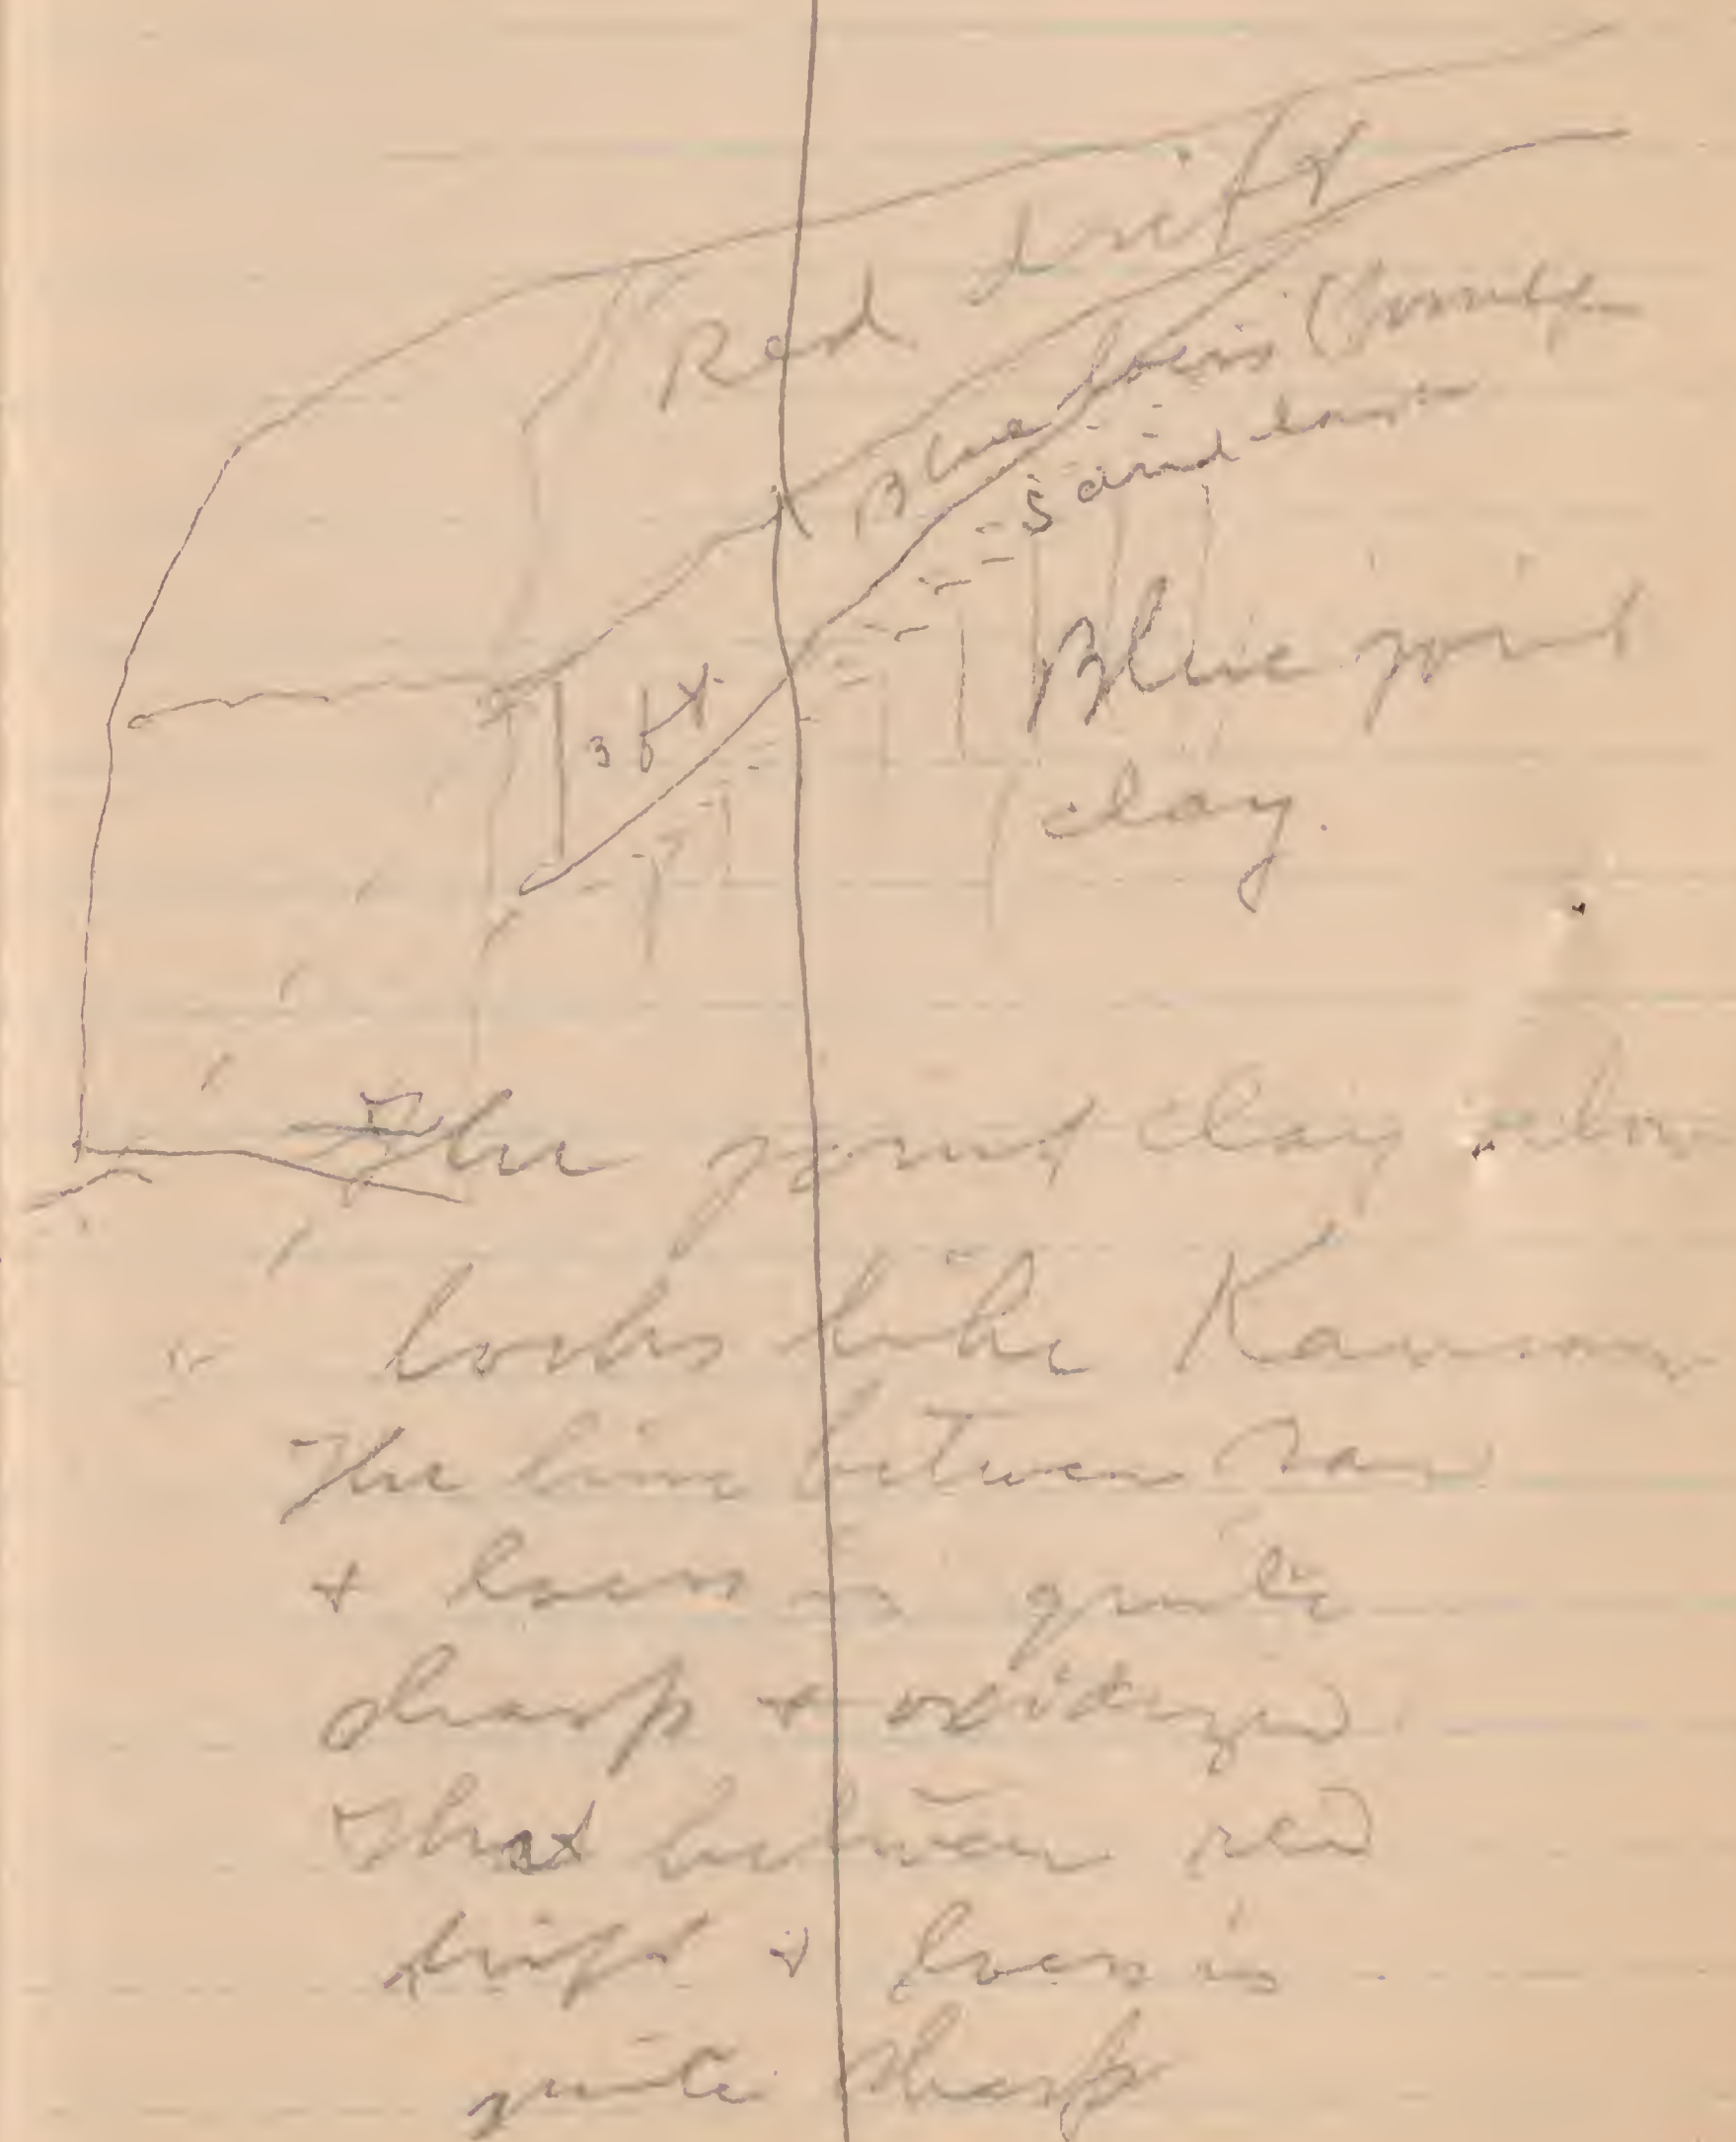 Red drift
Blue loess
3 ft.
Sand
Blue joint
clay.
The joint clay
looks like Kansan
The line between
+ loess is quite
sharp + oxidized
That between red
drift + loess is
quite sharp